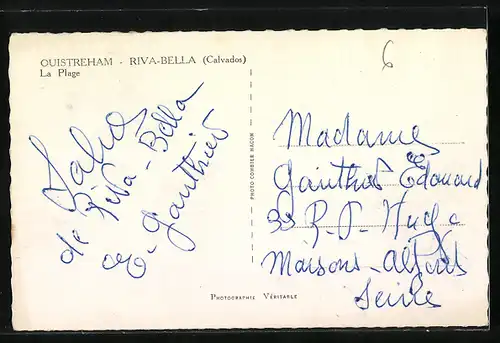 OUISTREHAM - RIVA-BELLA (Calvados)
La Plage
6
de Riva-Bella
Gauthier
PHOTO COMBIER MACON
Madame
Gauthier Edouard
33 R. V. Hugo
Maisons-Alfort
Seine
PHOTOGRAPHIE VÉRITABLE